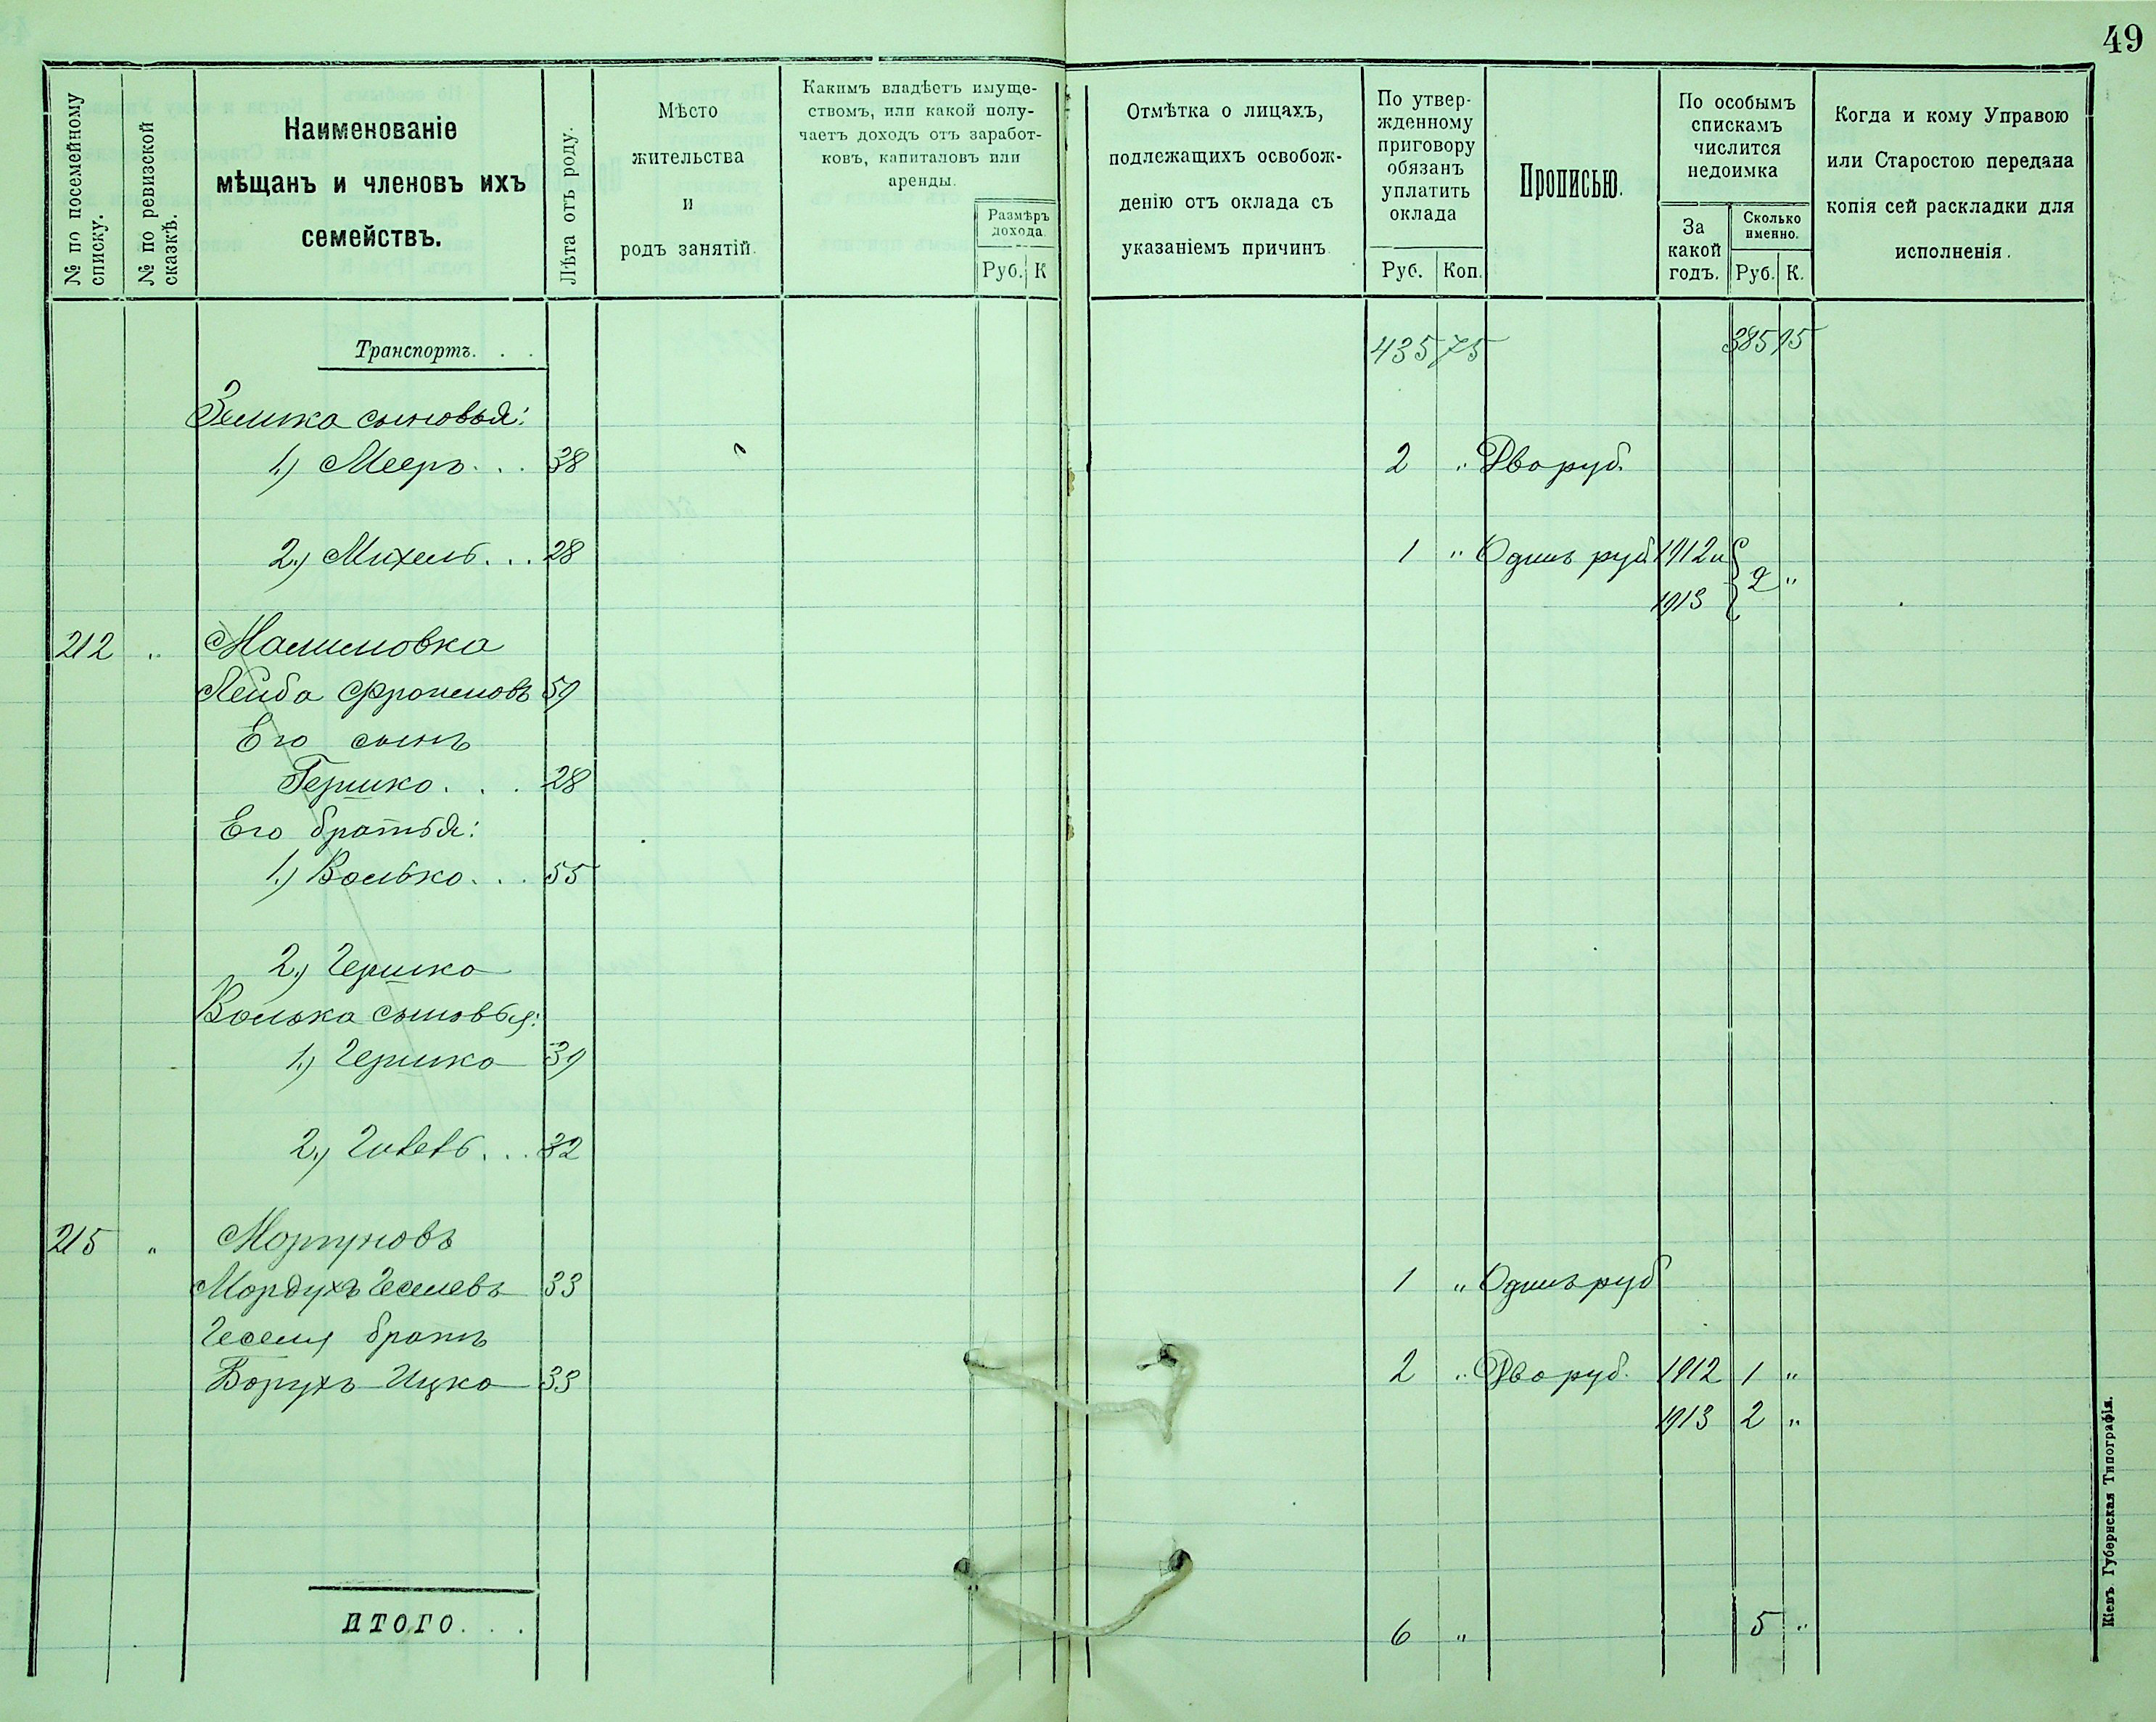 49
№ по посемейному списку.
№ по ревизской сказкѣ.
Наименованіе
мѣщанъ и членовъ ихъ
семействъ.
Лѣта отъ роду.
Мѣсто
жительства
и
родъ занятій.
Какимъ владѣетъ имуще-
ствомъ, или какой полу-
чаетъ доходъ отъ заработ-
ковъ, капиталовъ или
аренды.
Размѣръ
дохода.
Руб. К
Отмѣтка о лицахъ,
подлежащихъ освобож-
денію отъ оклада съ
указаніемъ причинъ.
По утвер-
жденному
приговору
обязанъ
уплатить
оклада
Руб. Коп.
Прописью.
По особымъ
спискамъ
числится
недоимка
За
какой
годъ.
Сколько
именно.
Руб. К.
Когда и кому Управою
или Старостою передана
копія сей раскладки для
исполненія.
Транспортъ. . . 435 75 385 15
Зелика сыновья:
1.) Мееръ . . . 38 2 " Два руб.
2.) Михель . . . 28 1 " Одинъ руб 1912 и
1913 2 "
212 "
Лейба 59
Его сынъ
Гершко . . . 28
Его братья:
1.) Волько . . . 55
2.) Гершко
Волька сыновья:
1.) Гершко 39
2.) . . . 32
215 " Моргуновъ
Мордухъ Геселевъ 33 1 " Одинъ руб
Геселя братъ
Борухъ-Ицко 33 2 " Два руб. 1912 1 "
1913 2 "
ИТОГО. . . 6 " 5 "
Кіевъ Губернская Типографія.